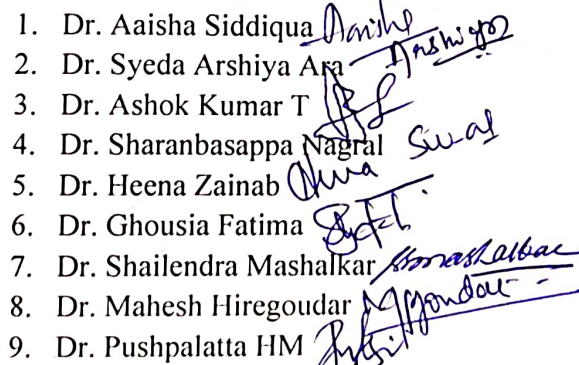 1. Dr. Aaisha Siddiqua Aaisha
2. Dr. Syeda Arshiya Ara Arshiya
3. Dr. Ashok Kumar T
4. Dr. Sharanbasappa Nagral
5. Dr. Heena Zainab
6. Dr. Ghousia Fatima
7. Dr. Shailendra Mashalkar
8. Dr. Mahesh Hiregoudar
9. Dr. Pushpalatta HM